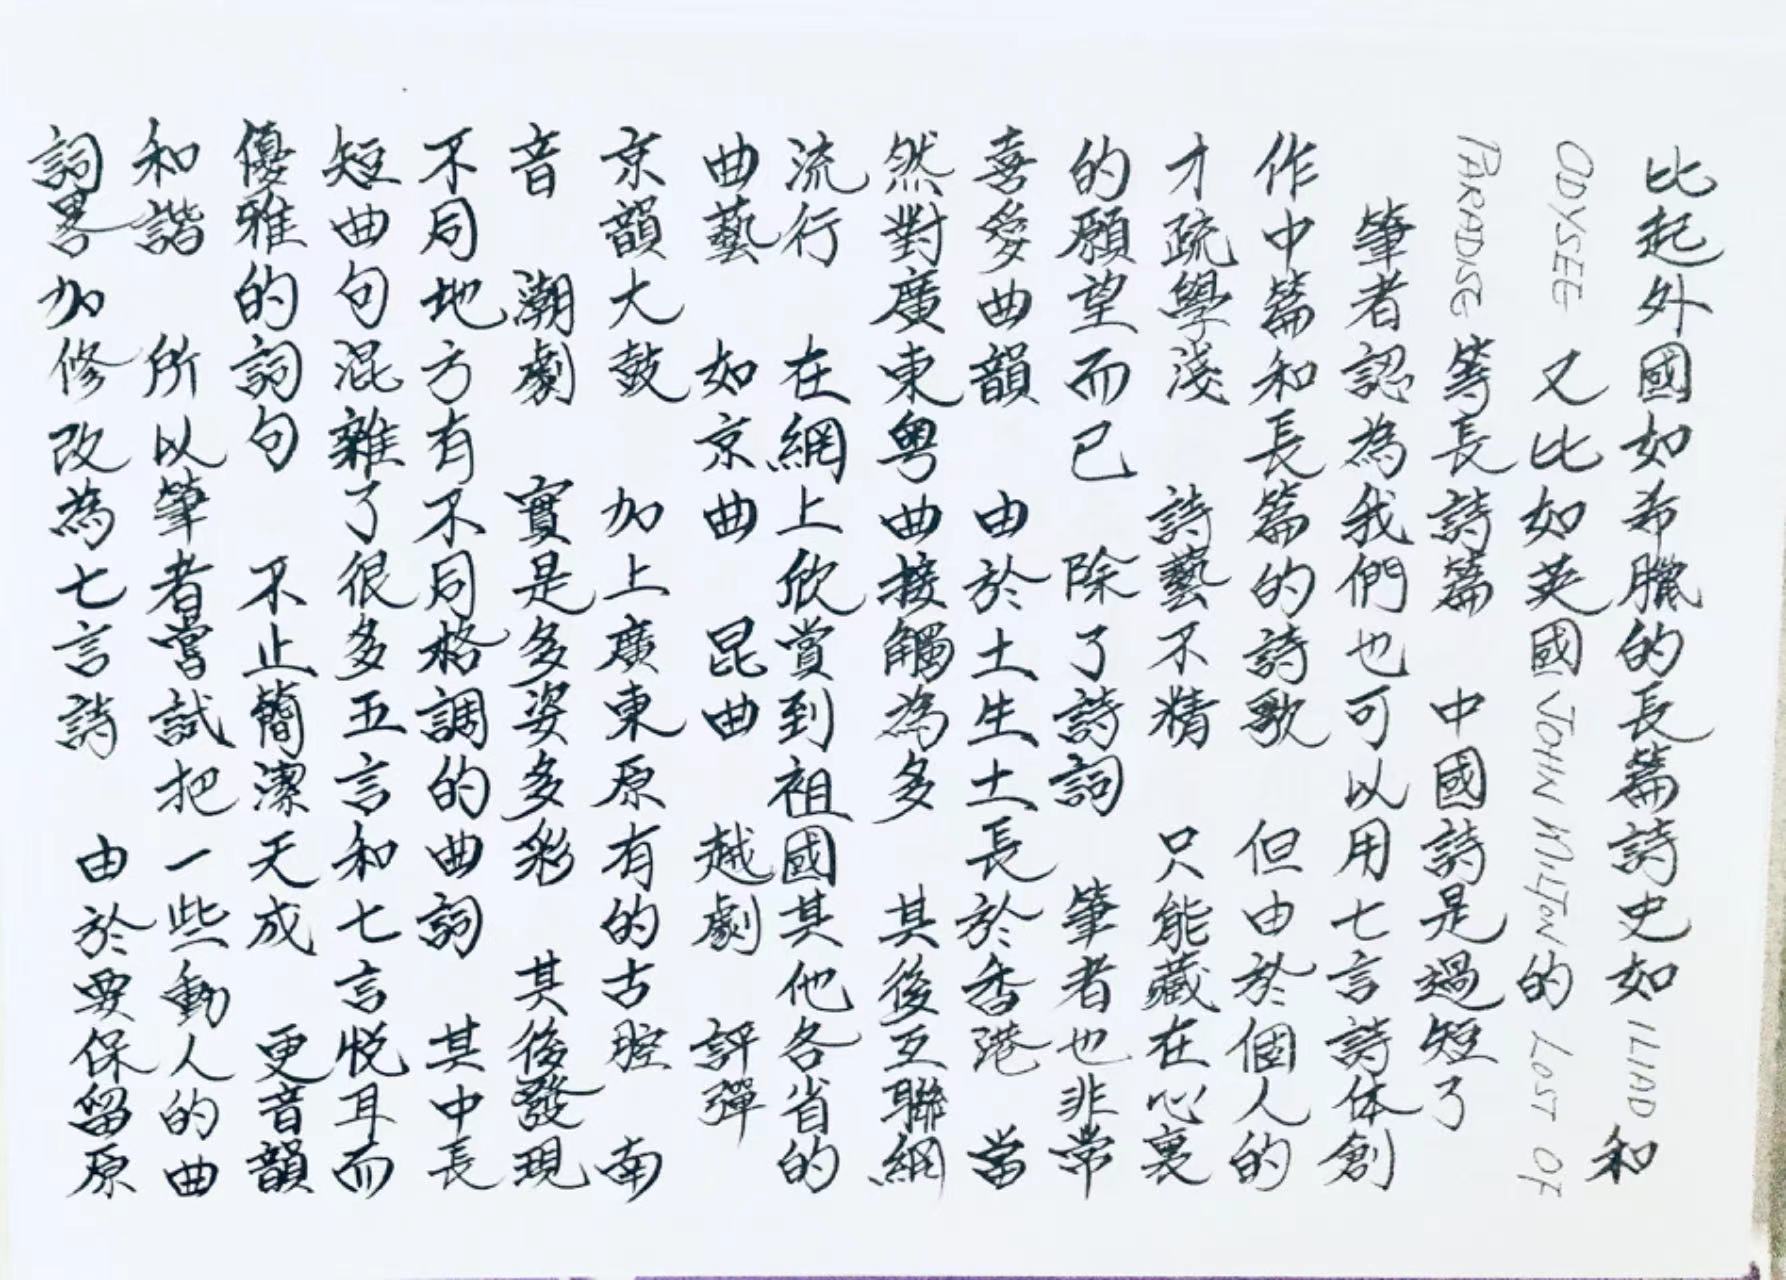 比起外國如希臘的長篇詩史如ILIAD和
ODYSEE 又比如英國JOHN MILTON的LOST OF
PARADISE等長詩篇 中國詩是過短了
筆者認為我們也可以用七言詩体創
作中篇和長篇的詩歌 但由於個人的
才疏學淺 詩藝不精 只能藏在心裏
的願望而已 除了詩詞 筆者也非常
喜愛曲韻 由於土生土長於香港 當
然對廣東粤曲接觸為多 其後互聯網
流行 在網上欣賞到祖國其他各省的
曲藝 如京曲 昆曲 越劇 評彈
京韻大鼓 加上廣東原有的古腔 南
音 潮劇 實是多姿多彩 其後發現
不同地方有不同格調的曲詞 其中長
短曲句混雜了很多五言和七言悅耳而
優雅的詞句 不止簡潔天成 更音韻
和諧 所以筆者嘗試把一些動人的曲
詞畧加修改為七言詩 由於要保留原